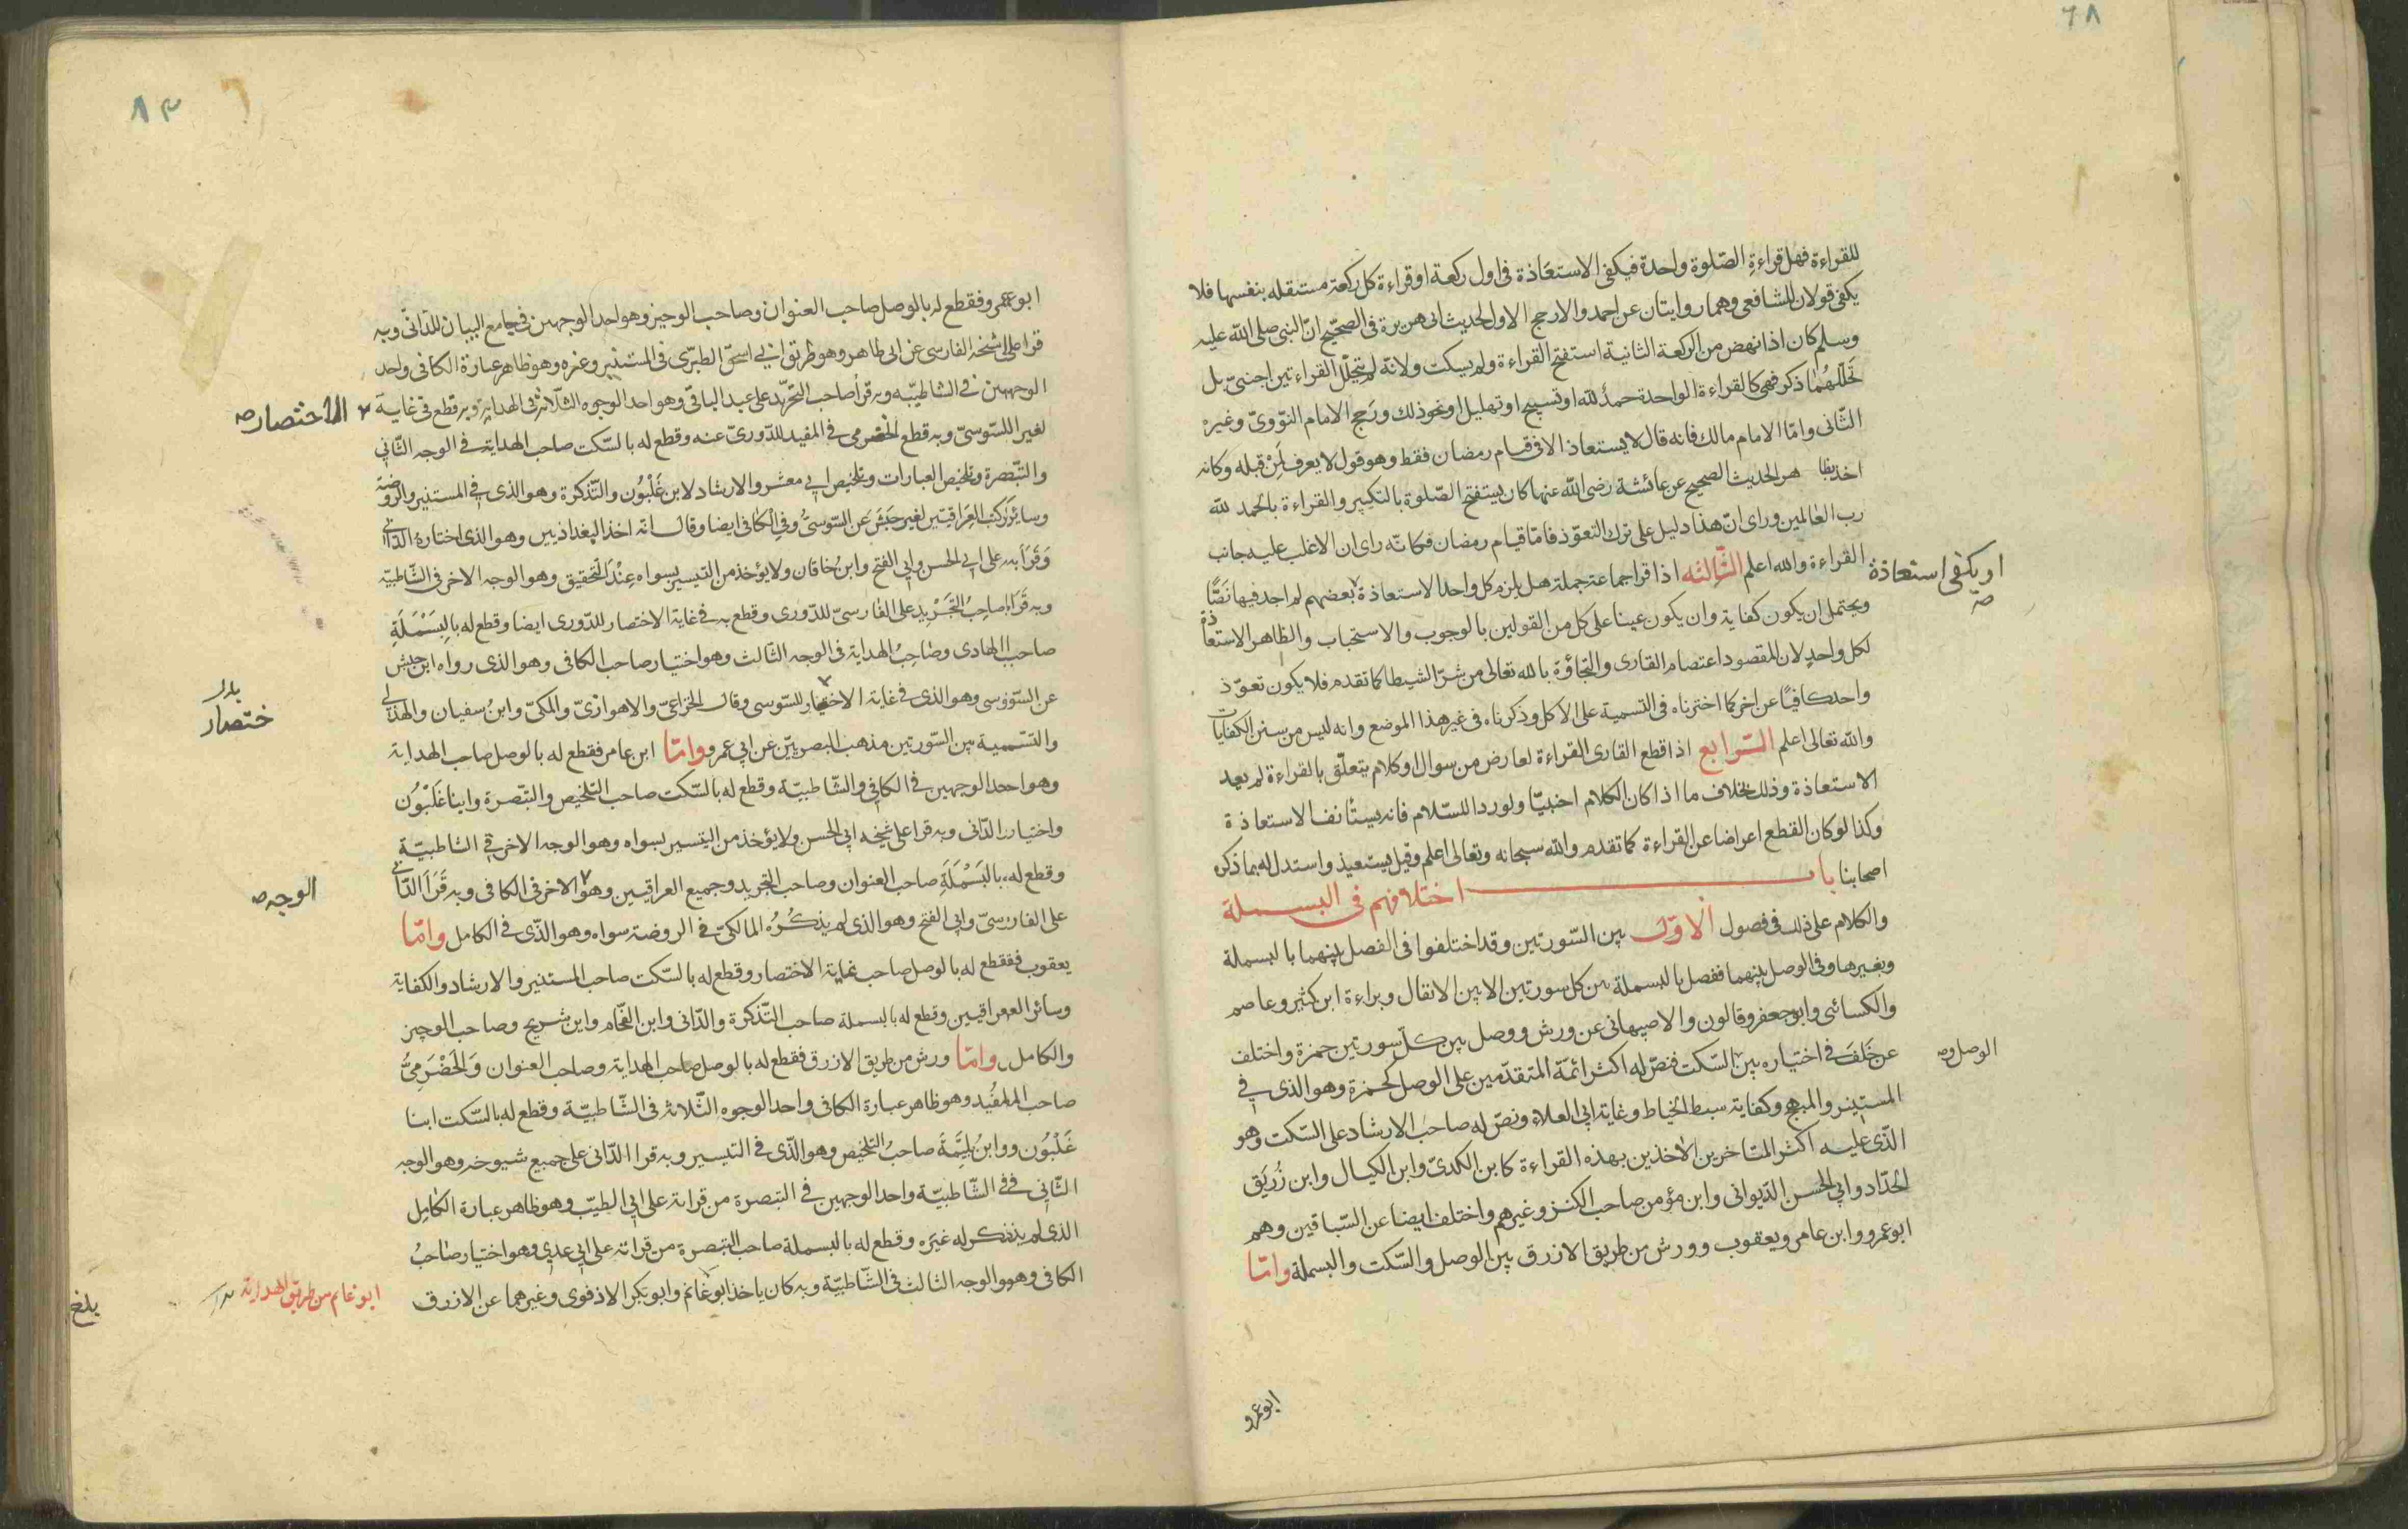 ٦٨
للقراءة فهل قراءة الصّلوة واحدة فيكفى الاستعاذة فى اول ركعة او قراءة كل ركعة مستقله بنفسها فلا
يكفى قولان للشافعى وهما روايتان عن احمد والارجح الاول لحديث ابى هريرة فى الصحيح انّ النبى صلى الله عليه
وسلم كان اذا نهض من الركعة الثانية استفتح القراءة ولم يسكت ولانه لم يتخلّل القراءتين اجنبىّ بل
تخلّلهُما ذكر فهى كالقراءة الواحدة حمدُ لله او تسبيح او تهليل او نحو ذلك ورَجح الامام النّووىّ وغيره
الثّانى وامّا الامام مالك فانه قال لا يستعاذ الا فى قيام رمضان فقط وهو قول لا يعرف لمَنْ قبله وكانه
اخذ بظاهر الحديث الصحيح عن عائشة رضى الله عنها كان يستفتح الصّلوة بالتكبير والقراءة بالحمد لله
رب العٰالمين وراى انّ هذا دليل على ترك التعوّذ فامّا قيام رمضان فكانّه راى ان الاغلب عليه جانب
القراءة والله اعلم الثّالثه اذا قرا جماعة جملة هل يلزم كل واحد الاستعاذة بعضهم لم اجد فيها نَصًّا
او يكفى استعاذة صح
ويحتمل ان يكون كفاية وان يكون عينا على كل من القولين بالوجوب والاستحباب والظاهر الاستعاذة
لكل واحدٍ لان المقصود اعتصام القارى والتجاؤه بالله تعالى من شرّ الشيطا كما تقدم فلا يكون تعوّذ
واحد كافيًا عن اخر كما اخترناه فى التسمية على الاكل وذكرناه فى غير هذا الموضع وانه ليس من سنن الكفايات
والله تعالى اعلم الرّابع اذا قطع القارى القراءة لعارض من سوال او كلام يتعلّق بالقراءة لم يعد
الاستعاذة وذلك بخلاف ما اذا كان الكلام اجنبيّا ولو ردا للسّلام فانه يستأنف الاستعاذة
وكذا لو كان القطع اعراضا عن القراءة كما تقدم والله سبحانه وتعالى اعلم وقيل يستعيذ واستدل له بما ذكره
اصحابنا باب اختلافهم فى البسملة
والكلام على ذلك فى فصول الاوّل بين السّورتين وقد اختلفوا فى الفصل بينهما بالبسملة
وبغيرها وفى الوصل بينهما ففصل بالبسملة بين كل سورتين الا بين الانفال وبراءة ابن كثير وعاصم
والكسائى وابو جعفر وقالون والاصبهانى عن ورش ووصل بين كلّ سورتين حمزة واختلف
عن خَلَف فى اختياره بين السّكت فنصّ له اكثر ائمّة المتقدّمين على الوصل كحمزة وهو الذى فى
الوصل و صح
المستنير والمبهج وكفاية سبط الخياط وغاية ابى العلاء ونصّ له صاحب الارشاد على السّكت وهو
الّذى عليه اكثر المتاخرين الاٰخذين بهذه القراءة كابن الكدىّ وابن الكيال وابن زُرَيق
الحدّاد وابى الحسن الدّيوانى وابن مؤمن صاحب الكنز وغيرهم واختلف ايضا عن السّباقين وهم
ابو عمرو وابن عامر ويعقوب وورش من طريق الازرق بين الوصل والسّكت والبسملة وامّا
ابو عمرو
٨٣
ابو عمرو فقطع له بالوصل صاحب العنوان وصاحب الوجيز وهو احد الوجهين فى جامع البيان للدّانىّ وبه
قرا على شيخه الفارسى عن ابى طاهر وهو طريق ابى اسحٰق الطبرّى فى المستنير وغيره وهو ظاهر عبارة الكافى واحد
الوجهين فى الشاطبيّه وبه قرأ صاحب التجريد على عبد الباقىّ وهو احد الوجوه الثلاثه فى الهداية وبه قطع فى غاية
الاختصار صح
لغير اللسّوسىّ وبه قطع الحضرمى فى المفيد للدّورىّ عنه وقطع له بالسّكت صاحب الهداية فى الوجه الثّانى
والتّبصرة وتلخيص العبارات وتلخيص ابى معشر والارشاد لابن غَلْبُون والتّذكرة وهو الذى فى المستنير والروضة
وسائر كتب العِرَاقيّين لغير حَبَش عَن السّوسىّ وفى الكافى ايضا وقال انه اخذ البغداذيين وهو الذى اختاره الدّانى
وَقَرَأ به على ابى الحسن وابى الفتح وابن خاقان ولا يؤخذ من التيسير بسواه عِنْدَ التحقيق وهو الوجه الاخر فى الشّاطبيّه
وبه قَرَأ صَاحِبُ التّجريدِ على الفارسىّ للدّورى وقطع به فى غاية الاختصار للدّورى ايضا وقطع له بِالبَسْمَلَةِ
صاحب الهادى وصَاحِبُ الهداية فى الوجه الثّالث وهو اختيار صاحب الكافى وهو الذى رواه ابن حبش
عن السّوسى وهو الذى فى غاية الاختيار للسّوسى وقال الخزاعىّ والاهوازىّ والمكىّ وابنُ سفيان والهذلى
بدل
ختصار
والتسّمية بين السّورتين مذهب البصريّين عن ابى عمرو وامّا ابن عامر فقطع له بالوصل صاحب الهداية
وهو احد الوجهين فى الكافى والشّاطبيّة وقطع له بالسّكت صاحب التلخيص والتبّصرة وابنا غَلْبُون
واختيار الدّانى وبه قرا على شيخه ابى الحسن ولا يؤخذ من التيسير بسواه وهو الوجه الاخر فى الشاطبيّة
وقطع له بالبَسْمَلَةِ صاحب العنوان وصاحب التجريد وجميع العراقيين وهو الاخر فى الكافى وبه قَرَأ الدّانى
الوجه صح
على الفارسىّ وابى الفتح وهو الذى لم يذكُرُه المالكىّ فى الروضة سواه وهو الذّى فى الكامل وامّا
يعقوب فقطع له بالوصل صاحب غاية الاختصار وقطع له بالسّكت صاحب المستنير والارشاد والكفاية
وسائر العراقيين وقطع له بالبسملة صاحب التّذكرة والدّانى وابن الفحّام وابن شريح وصاحب الوجيز
والكامل وامّا ورش من طريق الازرق فقطع له بالوصل صاحب الهداية وصاحب العنوان وَالحَضْرَمِىُّ
صاحب المفُيد وهو ظاهر عبارة الكافى واحد الوجوه الثّلاثة فى الشّاطبيّة وقطع له بالسّكت ابنا
غَلْبُون وابنُ بَلّيمَةَ صاحبُ التلخيص وهو الذّى فى التيسير وبه قرا الدّانى على جميع شيوخه وهو الوجه
الثّانى فى الشّاطبيّة واحد الوجهين فى التبصرة من قراته على ابى الطيّب وهو ظاهر عبارة الكامِل
الذى لم يذكر له غيَره وقطع له بالبسملة صاحب التبصرة من قراته على ابى عدى وهو اختيار صَاحبُ
الكافى وهو الوجه الثالث فى الشّاطبيّة وبه كان ياخذ ابو غانم وابو بكر الاذفوى وغيرهما عن الازرق
ابو غانم من طريق الهداية
بلغ